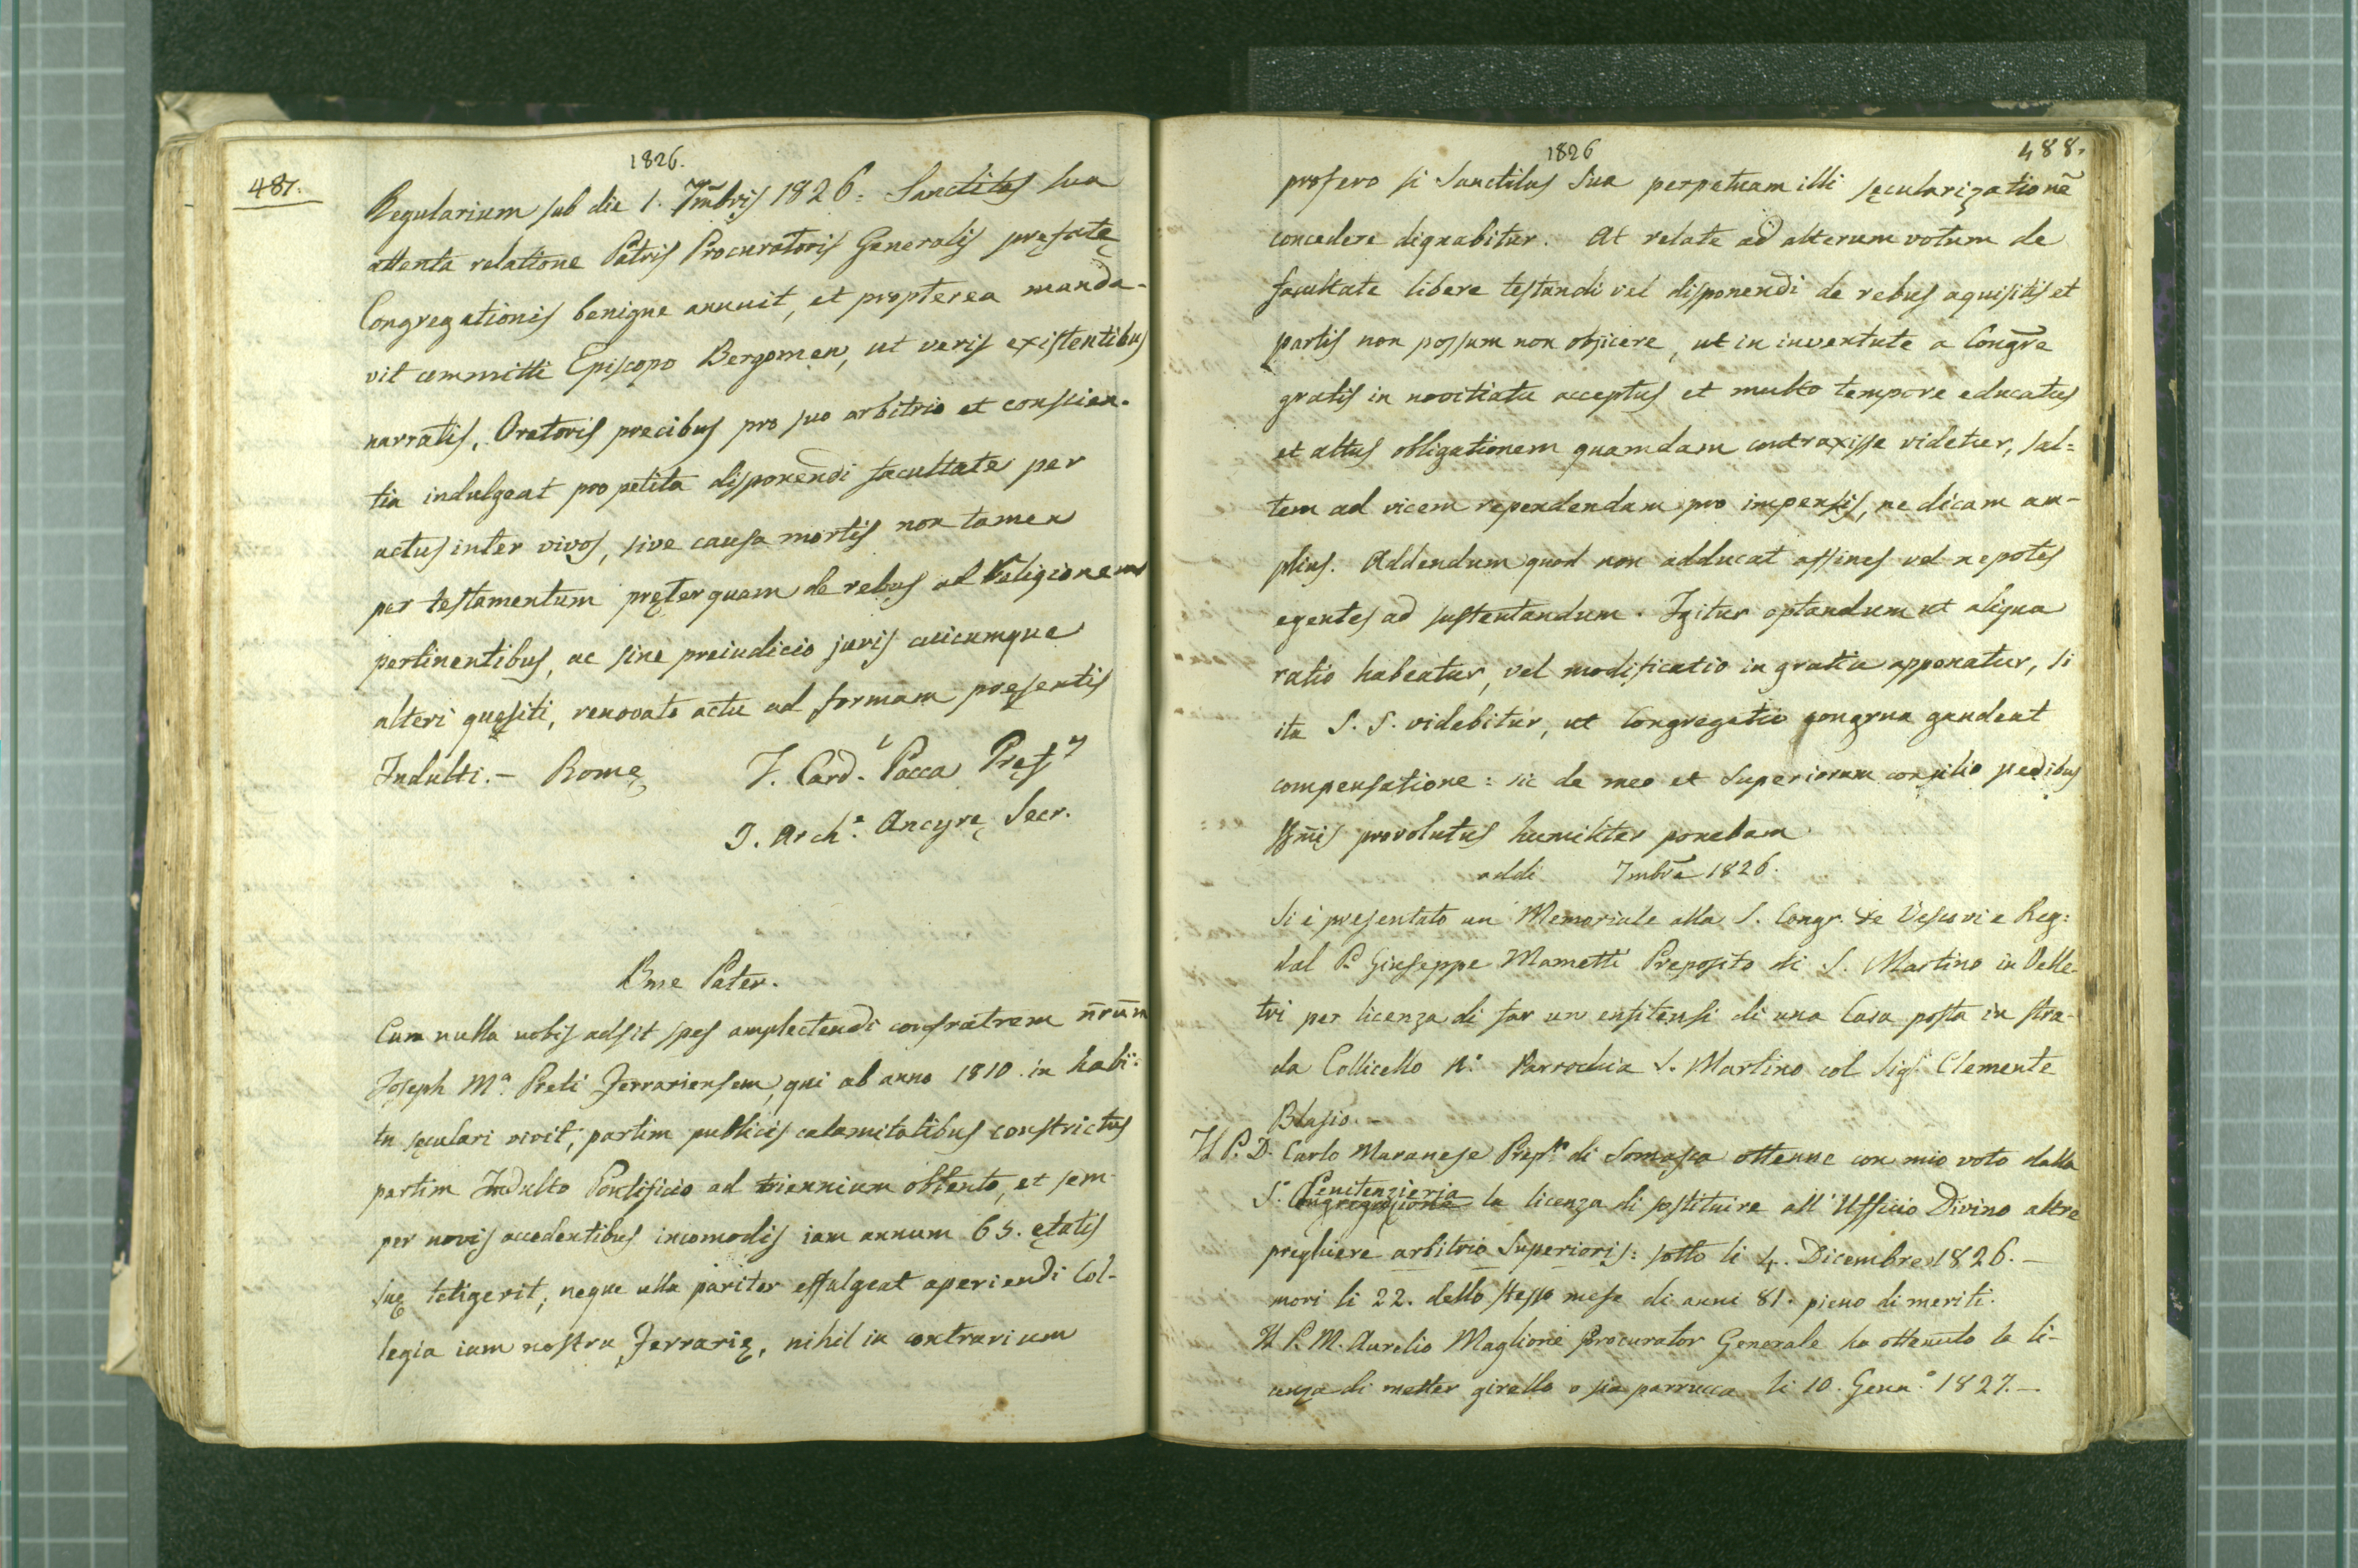 1826.
487.
Regularium sub die 1. 7mbris 1826: Sanctitas sua
attenta relatione Patris Procuratoris Generalis prefatę
Congregationis benigne annuit, et propterea manda-
vit committi Episcopo Bergomen, ut veris existentibus
narratis, Oratoris precibus pro suo arbitrio et conscien-
tia indulgeat pro petita disponendi facultate per
actus inter vivos, sive causa mortis non tamen
per testamentum pręterquam de rebus ad Religionem
pertinentibus, ac sine preiudicio juris cuicumque
alteri quęsiti, renovato actu ad formam presentis
Indulti. - Romę J. Card.l Pacca Pręf.
J. Arch.e Ancyrę Secr.
Bme Pater.
Cum nulla nobis adsit spes amplectendi confratrem nrum
Joseph M.a Preti Ferrariensem, qui ab anno 1810 in habi-
tu sęculari vivit, partim publicis calamitatibus constrictus
partim Indulto Pontificio ad triennium obtento, et sem-
per novis accedentibus incomodis iam annum 65. ętatis
suę tetigerit, neque ulla pariter effulgeat aperiendi Col-
legia iam nostra Ferrarię, nihil in contrarium
1826
488.
profero si Sanctitas Sua perpetuam illi sęcularizationē
concedere dignabitur. At relate ad alterum votum de
facultate libere testandi vel disponendi de rebus aquisitis et
partis non possum non objicere, ut in inventute a Congre
gratis in novitiatu acceptus et multo tempore educatus
et altus obligationem quamdam contraxisse videtur, sal=
tem ad vicem rependendam pro impensis, ne dicam am-
plius. Addendum quod non adducat affines vel nepotes
egentes ad sustentandum. Igitur optandum ut aliqua
ratio habeatur, vel modificatio in gratia apponatur, si
ita S. S. videbitur, ut Congregatio congrua gaudeat
compensatione: sic de meo et Superiorum consilio pedibus
SSmis provolutus humiliter ponebam
addi 7mbre 1826.
Si è presentato un Memoriale alla S. Congr. de Vescovi e Reg:
dal P. Giuseppe Mametti Preposito di S. Martino in Velle-
tri per licenza di far un enfitensi di una Casa posta in stra-
da Collicello N.o Parrochia S. Martino col Sig.r Clemente
Blasio. -
Il P. D. Carlo Maranese Prep.to di Somasca ottenne con mio voto dalla
Penitenzieria
S. Congregazione la licenza di sostituire all'Ufficio Divino altre
preghiere arbitrio Superioris: sotto li 4. Dicembre 1826. -
mori li 22. dello stesso mese di anni 81. pieno di meriti.
Il P. M. Aurelio Maglione Procurator Generale ha ottenuto la li-
cenza di metter girello o sia parrucca li 10. Genn.o 1827. -